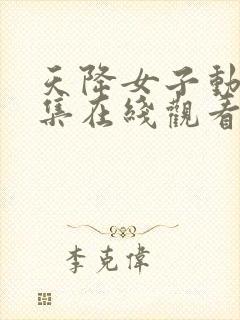 天降女子動
集在綫觀看
李克偉